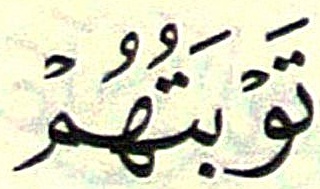 تَوْبَتُهُمْ